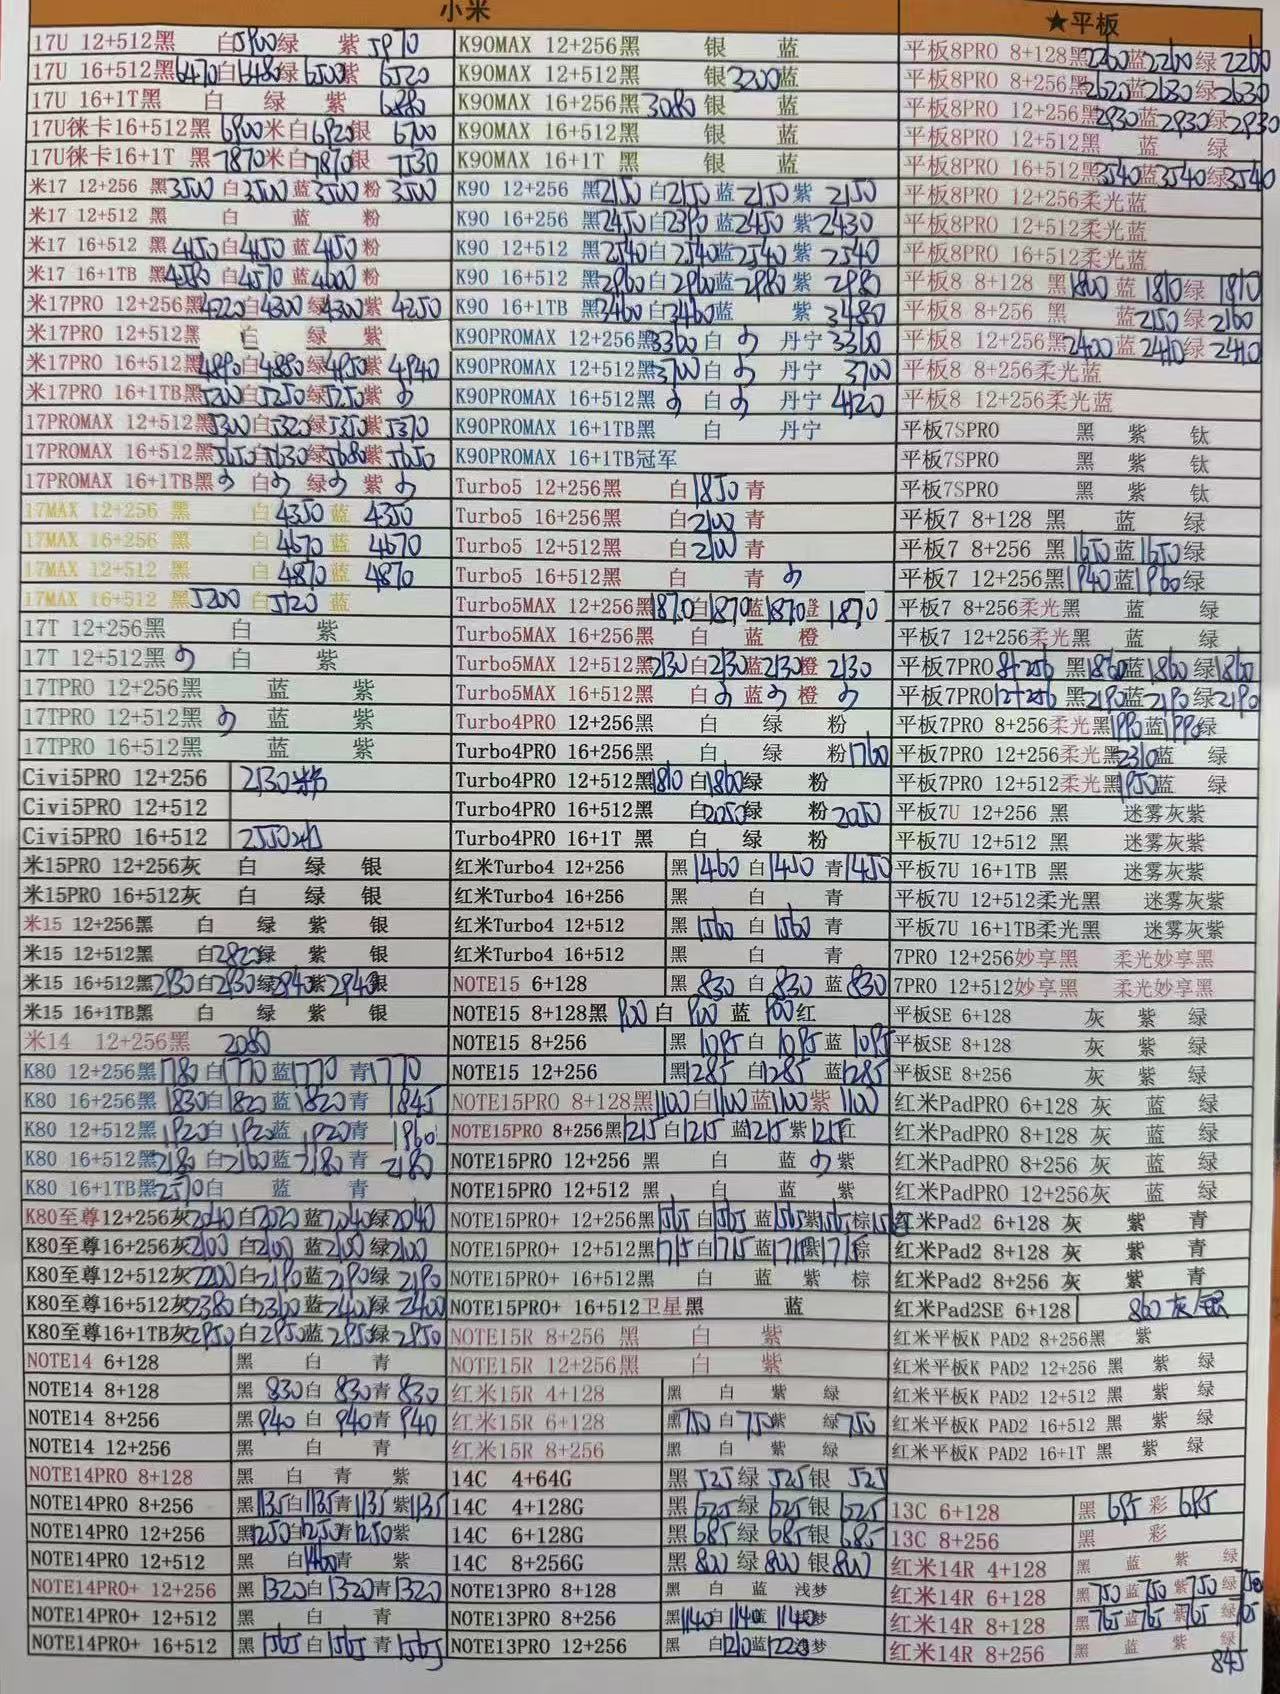 小米
17U 12+512黑 白5900绿 紫5970
17U 16+512黑6470白6480绿6500紫6520
17U 16+1T黑 白 绿 紫6880
17U徕卡16+512黑6900米白6920银6700
17U徕卡16+1T 黑7870米白7870银7530
米17 12+256 黑3500白3500蓝3500粉3500
米17 12+512 黑 白 蓝 粉
米17 16+512 黑4450白4450蓝4450粉
米17 16+1TB 黑4580白4570蓝4600粉
米17PRO 12+256黑4220白4300绿4300紫4250
米17PRO 12+512黑 白 绿 紫
米17PRO 16+512黑4890白4880绿4950紫4940
米17PRO 16+1TB黑5200白5250绿5250紫
17PROMAX 12+512黑5300白5320绿5350紫5370
17PROMAX 16+512黑5650白5630绿5680紫5650
17PROMAX 16+1TB黑 白 绿 紫
17MAX 12+256 黑 白4350蓝4350
17MAX 16+256 黑 白4670蓝4670
17MAX 12+512 黑 白4870蓝4870
17MAX 16+512 黑5200白5120蓝
17T 12+256黑 白 紫
17T 12+512黑 白 紫
17TPRO 12+256黑 蓝 紫
17TPRO 12+512黑 蓝 紫
17TPRO 16+512黑 蓝 紫
Civi5PRO 12+256 2130米
Civi5PRO 12+512
Civi5PRO 16+512 2550
米15PRO 12+256灰 白 绿 银
米15PRO 16+512灰 白 绿 银
米15 12+256黑 白 绿 紫 银
米15 12+512黑 白2820绿 紫 银
米15 16+512黑2930白2930绿2940紫2940银
米15 16+1TB黑 白 绿 紫 银
米14 12+256黑 2080
K80 12+256黑1780白1770蓝1770青1770
K80 16+256黑1830白1820蓝1820青1845
K80 12+512黑1920白1920蓝1920青1960
K80 16+512黑2180白2160蓝2180青2180
K80 16+1TB黑2570白 蓝 青
K80至尊12+256灰2040白2020蓝2040绿2040
K80至尊16+256灰2100白2100蓝2100绿2100
K80至尊12+512灰2200白2190蓝2190绿2190
K80至尊16+512灰2380白2360蓝2400绿2400
K80至尊16+1TB灰2950白2950蓝2950绿2950
NOTE14 6+128 黑 白 青
NOTE14 8+128 黑830白830青830
NOTE14 8+256 黑940白940青940
NOTE14 12+256 黑 白 青
NOTE14PRO 8+128 黑 白 青 紫
NOTE14PRO 8+256 黑1135白1135青1135紫1135
NOTE14PRO 12+256 黑1250白1250青1250紫
NOTE14PRO 12+512 黑 白1460青 紫
NOTE14PRO+ 12+256 黑1320白1320青1320
NOTE14PRO+ 12+512 黑 白 青
NOTE14PRO+ 16+512 黑1565白1565青1565
K90MAX 12+256黑 银 蓝
K90MAX 12+512黑 银3200蓝
K90MAX 16+256黑3080银 蓝
K90MAX 16+512黑 银 蓝
K90MAX 16+1T 黑 银 蓝
K90 12+256 黑2150白2150蓝2150紫2150
K90 16+256 黑2450白2390蓝2450紫2430
K90 12+512 黑2540白2540蓝2540紫2540
K90 16+512 黑2960白2960蓝2980紫2980
K90 16+1TB 黑3460白3460蓝 紫3480
K90PROMAX 12+256黑3360白 丹宁3360
K90PROMAX 12+512黑3700白 丹宁3700
K90PROMAX 16+512黑 白 丹宁4120
K90PROMAX 16+1TB黑 白 丹宁
K90PROMAX 16+1TB冠军
Turbo5 12+256黑 白1850青
Turbo5 16+256黑 白2100青
Turbo5 12+512黑 白2100青
Turbo5 16+512黑 白 青
Turbo5MAX 12+256黑1870白1870蓝1870橙1870
Turbo5MAX 16+256黑 白 蓝 橙
Turbo5MAX 12+512黑2130白2130蓝2130橙2130
Turbo5MAX 16+512黑 白 蓝 橙
Turbo4PRO 12+256黑 白 绿 粉
Turbo4PRO 16+256黑 白 绿 粉1760
Turbo4PRO 12+512黑1810白1860绿 粉
Turbo4PRO 16+512黑 白2050绿 粉2050
Turbo4PRO 16+1T 黑 白 绿 粉
红米Turbo4 12+256 黑1460白1450青1450
红米Turbo4 16+256 黑 白 青
红米Turbo4 12+512 黑1560白1560青
红米Turbo4 16+512 黑 白 青
NOTE15 6+128 黑830白830蓝830
NOTE15 8+128黑900白900蓝900红
NOTE15 8+256 黑1095白1095蓝1095
NOTE15 12+256 黑1285白1285蓝1285
NOTE15PRO 8+128黑1100白1100蓝1100紫1100
NOTE15PRO 8+256黑1215白1215蓝1215紫1215红
NOTE15PRO 12+256 黑 白 蓝 紫
NOTE15PRO 12+512 黑 白 蓝 紫
NOTE15PRO+ 12+256黑1565白1565蓝1565紫1565棕
NOTE15PRO+ 12+512黑1715白1715蓝1715紫1715棕
NOTE15PRO+ 16+512黑 白 蓝 紫 棕
NOTE15PRO+ 16+512卫星黑 蓝
NOTE15R 8+256 黑 白 紫
NOTE15R 12+256黑 白 紫
红米15R 4+128 黑 白 紫 绿
红米15R 6+128 黑750白750紫 绿750
红米15R 8+256 黑 白 紫 绿
14C 4+64G 黑525绿525银525
14C 4+128G 黑625绿625银625
14C 6+128G 黑685绿685银685
14C 8+256G 黑800绿800银800
NOTE13PRO 8+128 黑 白 蓝 浅梦
NOTE13PRO 8+256 黑1140白1140蓝1140浅梦
NOTE13PRO 12+256 黑 白1210蓝1220浅梦
★平板
平板8PRO 8+128黑2260蓝2260绿2260
平板8PRO 8+256黑2620蓝2630绿2630
平板8PRO 12+256黑2930蓝2930绿2930
平板8PRO 12+512黑 蓝 绿
平板8PRO 16+512黑3540蓝3540绿3540
平板8PRO 12+256柔光蓝
平板8PRO 12+512柔光蓝
平板8PRO 16+512柔光蓝
平板8 8+128 黑1800蓝1810绿1810
平板8 8+256 黑 蓝2150绿2160
平板8 12+256黑2400蓝2410绿2410
平板8 8+256柔光蓝
平板8 12+256柔光蓝
平板7SPRO 黑 紫 钛
平板7SPRO 黑 紫 钛
平板7SPRO 黑 紫 钛
平板7 8+128 黑 蓝 绿
平板7 8+256 黑1650蓝1650绿
平板7 12+256黑1940蓝1960绿
平板7 8+256柔光黑 蓝 绿
平板7 12+256柔光黑 蓝 绿
平板7PRO8+256 黑1860蓝1860绿1860
平板7PRO12+256 黑2190蓝2190绿2190
平板7PRO 8+256柔光黑1990蓝1990绿
平板7PRO 12+256柔光黑2310蓝 绿
平板7PRO 12+512柔光黑1950蓝 绿
平板7U 12+256 黑 迷雾灰紫
平板7U 12+512 黑 迷雾灰紫
平板7U 16+1TB 黑 迷雾灰紫
平板7U 12+512柔光黑 迷雾灰紫
平板7U 16+1TB柔光黑 迷雾灰紫
7PRO 12+256妙享黑 柔光妙享黑
7PRO 12+512妙享黑 柔光妙享黑
平板SE 6+128 灰 紫 绿
平板SE 8+128 灰 紫 绿
平板SE 8+256 灰 紫 绿
红米PadPRO 6+128 灰 蓝 绿
红米PadPRO 8+128灰 蓝 绿
红米PadPRO 8+256灰 蓝 绿
红米PadPRO 12+256灰 蓝 绿
红米Pad2 6+128 灰 紫 青
红米Pad2 8+128 灰 紫 青
红米Pad2 8+256 灰 紫 青
红米Pad2SE 6+128 860灰/银
红米平板K PAD2 8+256黑 紫
红米平板K PAD2 12+256 黑 紫 绿
红米平板K PAD2 12+512 黑 紫 绿
红米平板K PAD2 16+512 黑 紫 绿
红米平板K PAD2 16+1T 黑 紫 绿
13C 6+128 黑695彩695
13C 8+256 黑 彩
红米14R 4+128 黑 蓝 紫 绿
红米14R 6+128 黑750蓝750紫750绿750
红米14R 8+128 黑765蓝765紫765绿765
红米14R 8+256 黑 蓝 紫 绿845